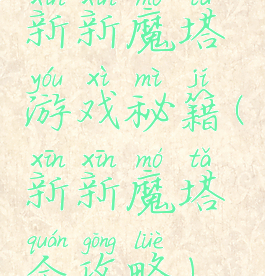 xīn xīn mó tǎ
新新魔塔
yóu xì mì jí
游戏秘籍(
xīn xīn mó tǎ
新新魔塔
quán gōng lüè
全攻略)